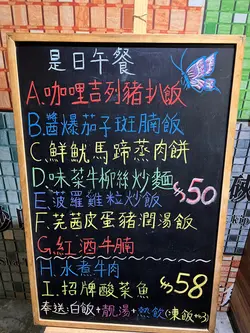 是日午餐
A.咖哩吉列豬扒飯
B.醬爆茄子斑腩飯
C.鮮魷馬蹄蒸肉餅
D.味菜牛柳絲炒麵
$50
E.菠羅雞粒炒飯
F.芫茜皮蛋豬潤湯飯
G.紅酒牛腩
H.水煮牛肉
$58
I.招牌酸菜魚
奉送:白飯+靚湯+熱飲(凍飯+3)